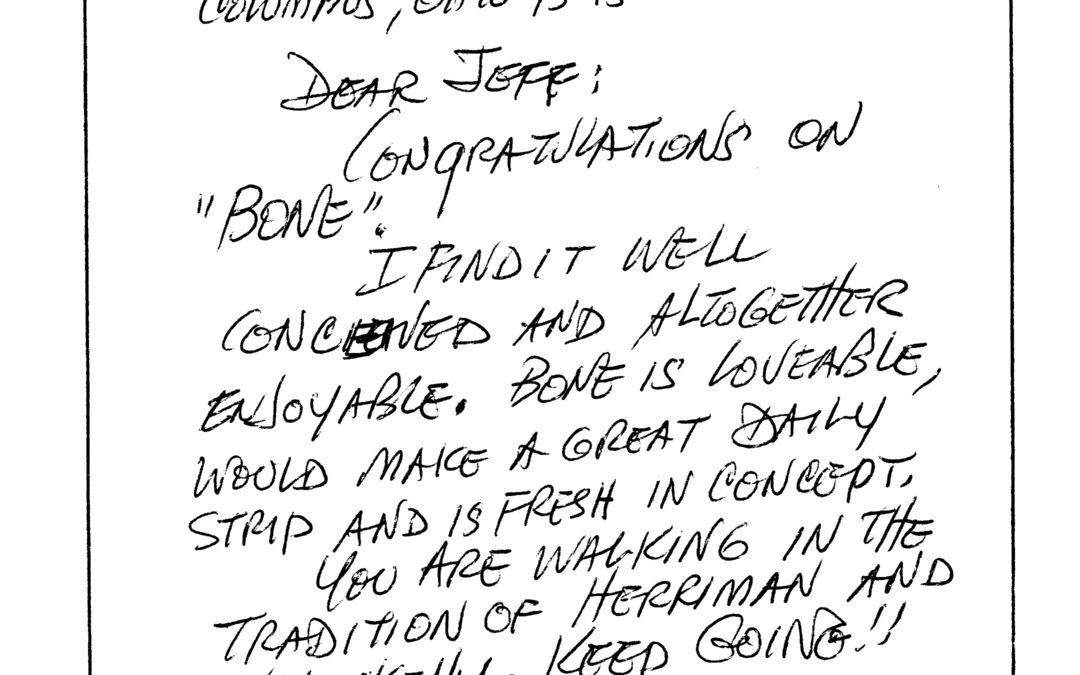 COLUMBUS, OHIO
DEAR JEFF:
CONGRATULATIONS ON
"BONE".
I FIND IT WELL
CONCEIVED AND ALTOGETHER
ENJOYABLE. BONE IS LOVEABLE,
WOULD MAKE A GREAT DAILY
STRIP AND IS FRESH IN CONCEPT.
YOU ARE WALKING IN THE
TRADITION OF HERRIMAN AND
KEEP GOING!!